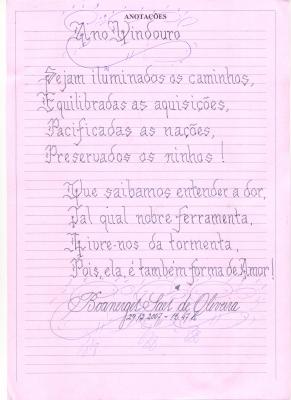 ANOTAÇÕES
Ano Vindouro
Sejam iluminados os caminhos,
Equilibradas as aquisições,
Pacificadas as nações,
Preservados os ninhos!
Que saibamos entender a dor,
Tal qual nobre ferramenta,
Livre-nos da tormenta,
Pois, ela, é também forma de Amor!
Boanerges Saes de Oliveira
29.12.2007 - 16.47 h